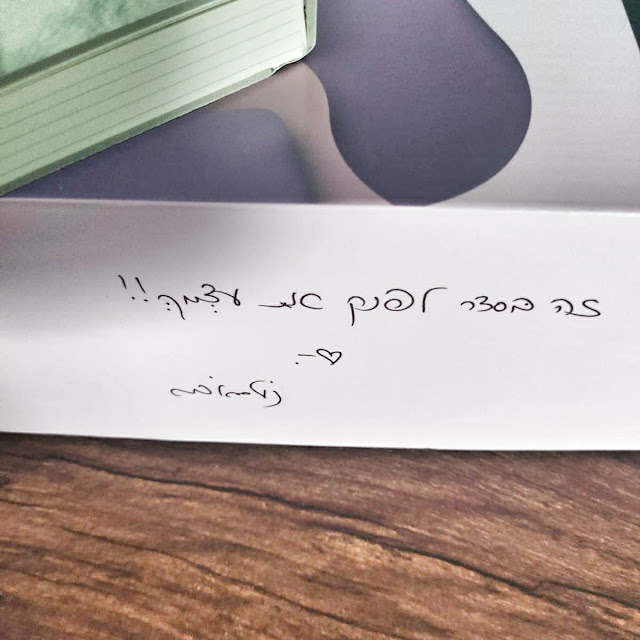 זה בסדר לפנק את עצמך!!
♡-.